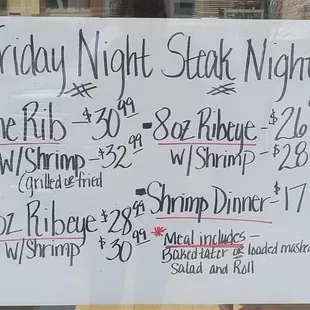 Friday Night Steak Night
#
#
me Rib - $30 99
w/Shrimp - $32 99
(grilled or fried
oz Ribeye $28 99
w/Shrimp $30 99
- 8oz Ribeye - $26
w/Shrimp - $28
- Shrimp Dinner - $17
* Meal includes -
Baked tater or loaded mashe
Salad and Roll